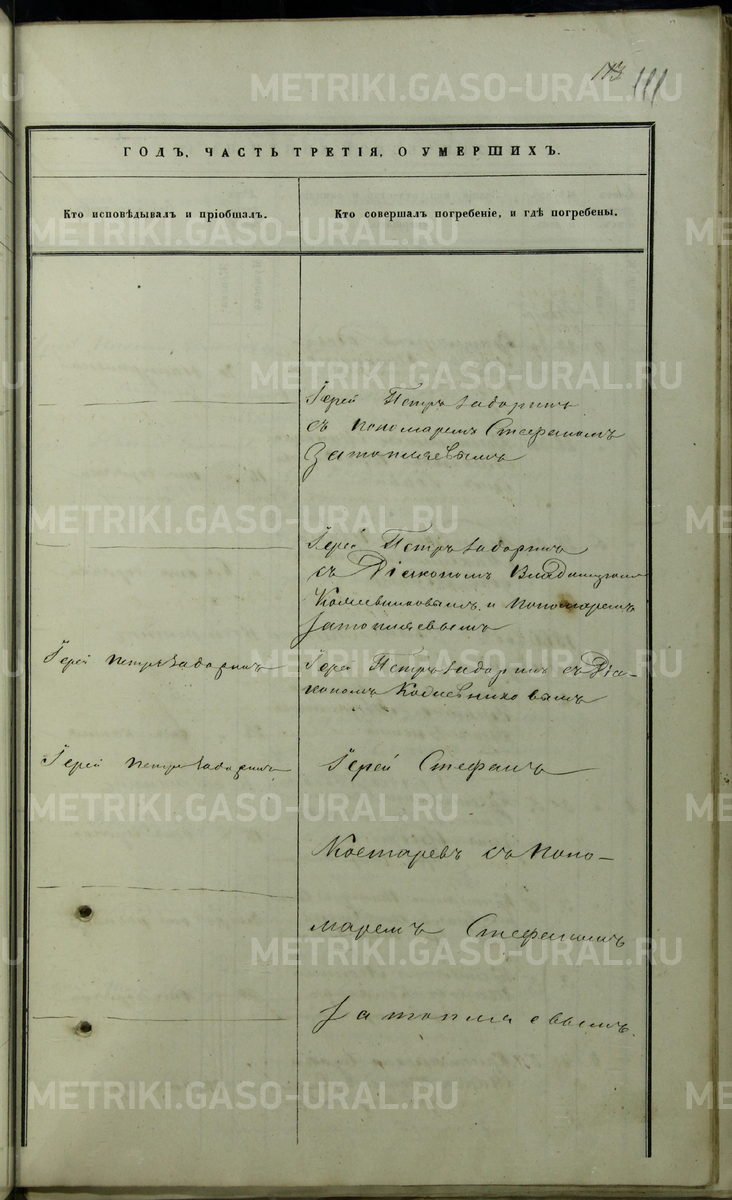 111
ГОДЪ, ЧАСТЬ ТРЕТІЯ, О УМЕРШИХЪ.
Кто исповѣдывалъ и пріобщалъ.
Кто совершалъ погребеніе, и гдѣ погребены.
Іерей Петръ Задоринъ
съ пономаремъ Стефаномъ
Затопляевымъ
Іерей Петръ Задоринъ
съ Діякономъ
Кожевниковымъ и пономаремъ
Затопляевымъ
Іерей Петръ Задоринъ
Іерей Петръ Задоринъ съ Дія-
кономъ Кожевниковымъ
Іерей Петръ Задоринъ
Іерей Стефанъ
Костаревъ съ поно-
маремъ Стефаномъ
Затопляевымъ.
METRIKI.GASO-URAL.RU